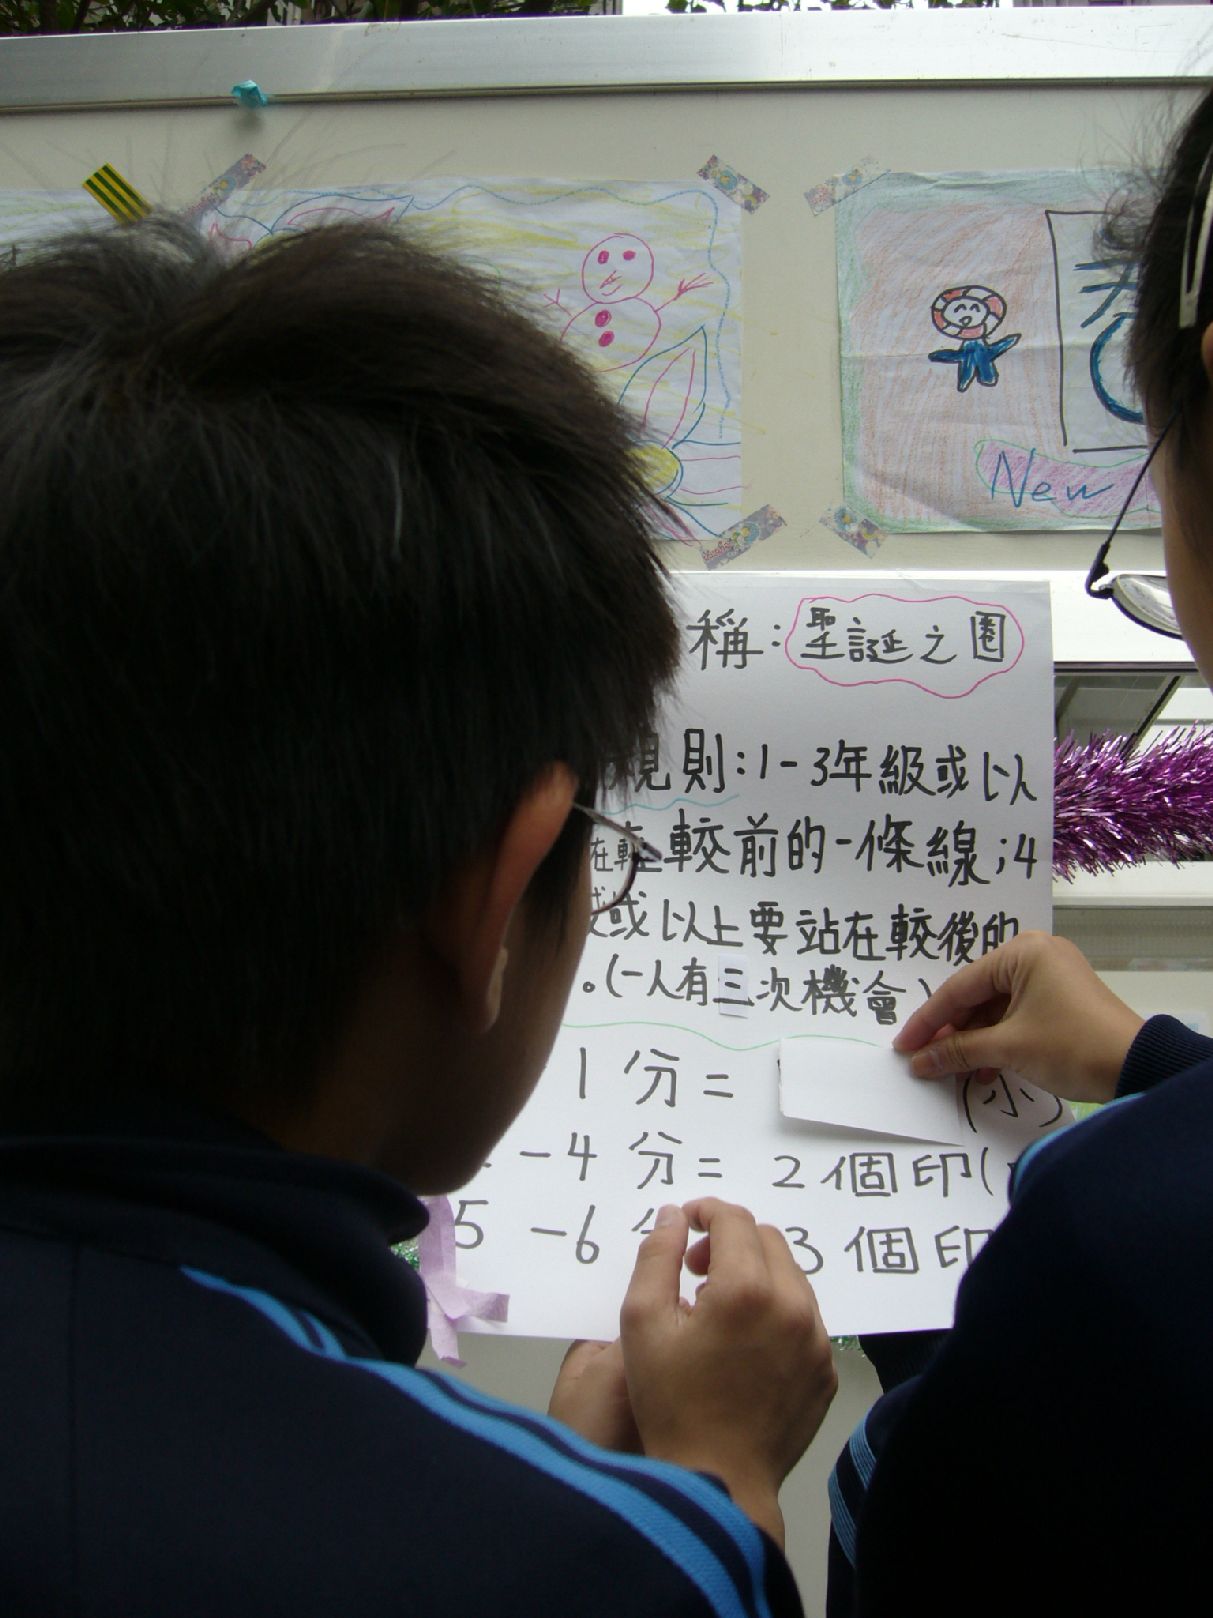 New
稱：聖誕之圈
規則：1-3年級或以
在較前的一條線；4
或以上要站在較後的
。(一人有三次機會)
1分=
(小)
-4分= 2個印(
5-6分 3個印